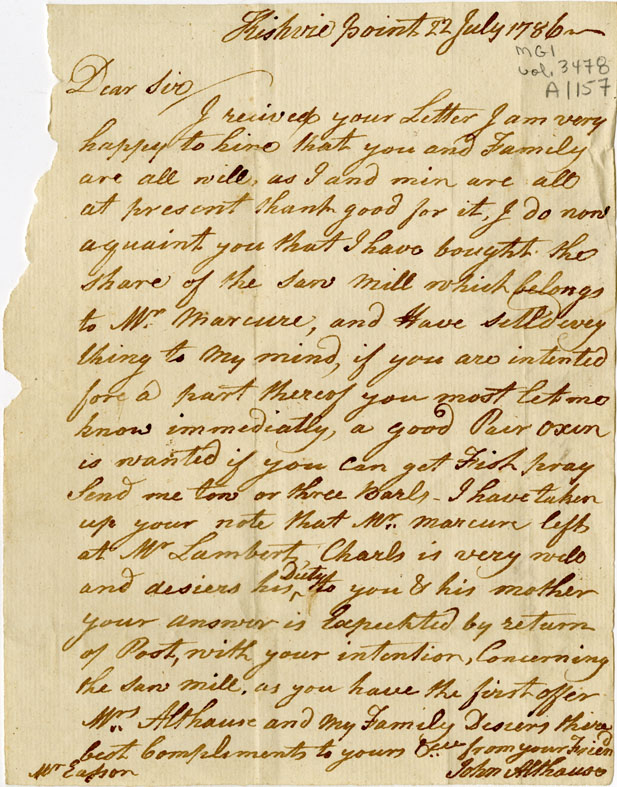 Point 22 July 1786
MG1
vol. 3478
A1157
Dear Sir
I recived your Letter I am very
happy to hire that you and Family
are all will, as I and min are all
at present thank good for it, I do now
aquaint you that I have bought the
share of the saw mill which belongs
to Mr. Marcure, and Have setled evey
thing to my mind, if you are intented
fore a part thereof you most let me
know immediatly, a good Pair oxen
is wanted if you can get Fish pray
Send me tow or three Barls - I have taken
up your note that Mr. marcure left
at Mr Lambert, Charls is very will
and desiers his Duty to you & his mother
your answer is Expeckted by return
of Post, with your intention, Concerning
the saw mill, as you have the first offer
Mrs Althouse and my Family Desiers thire
best Compliments to yours &ce from your Friend
Mr Easson John Althouse